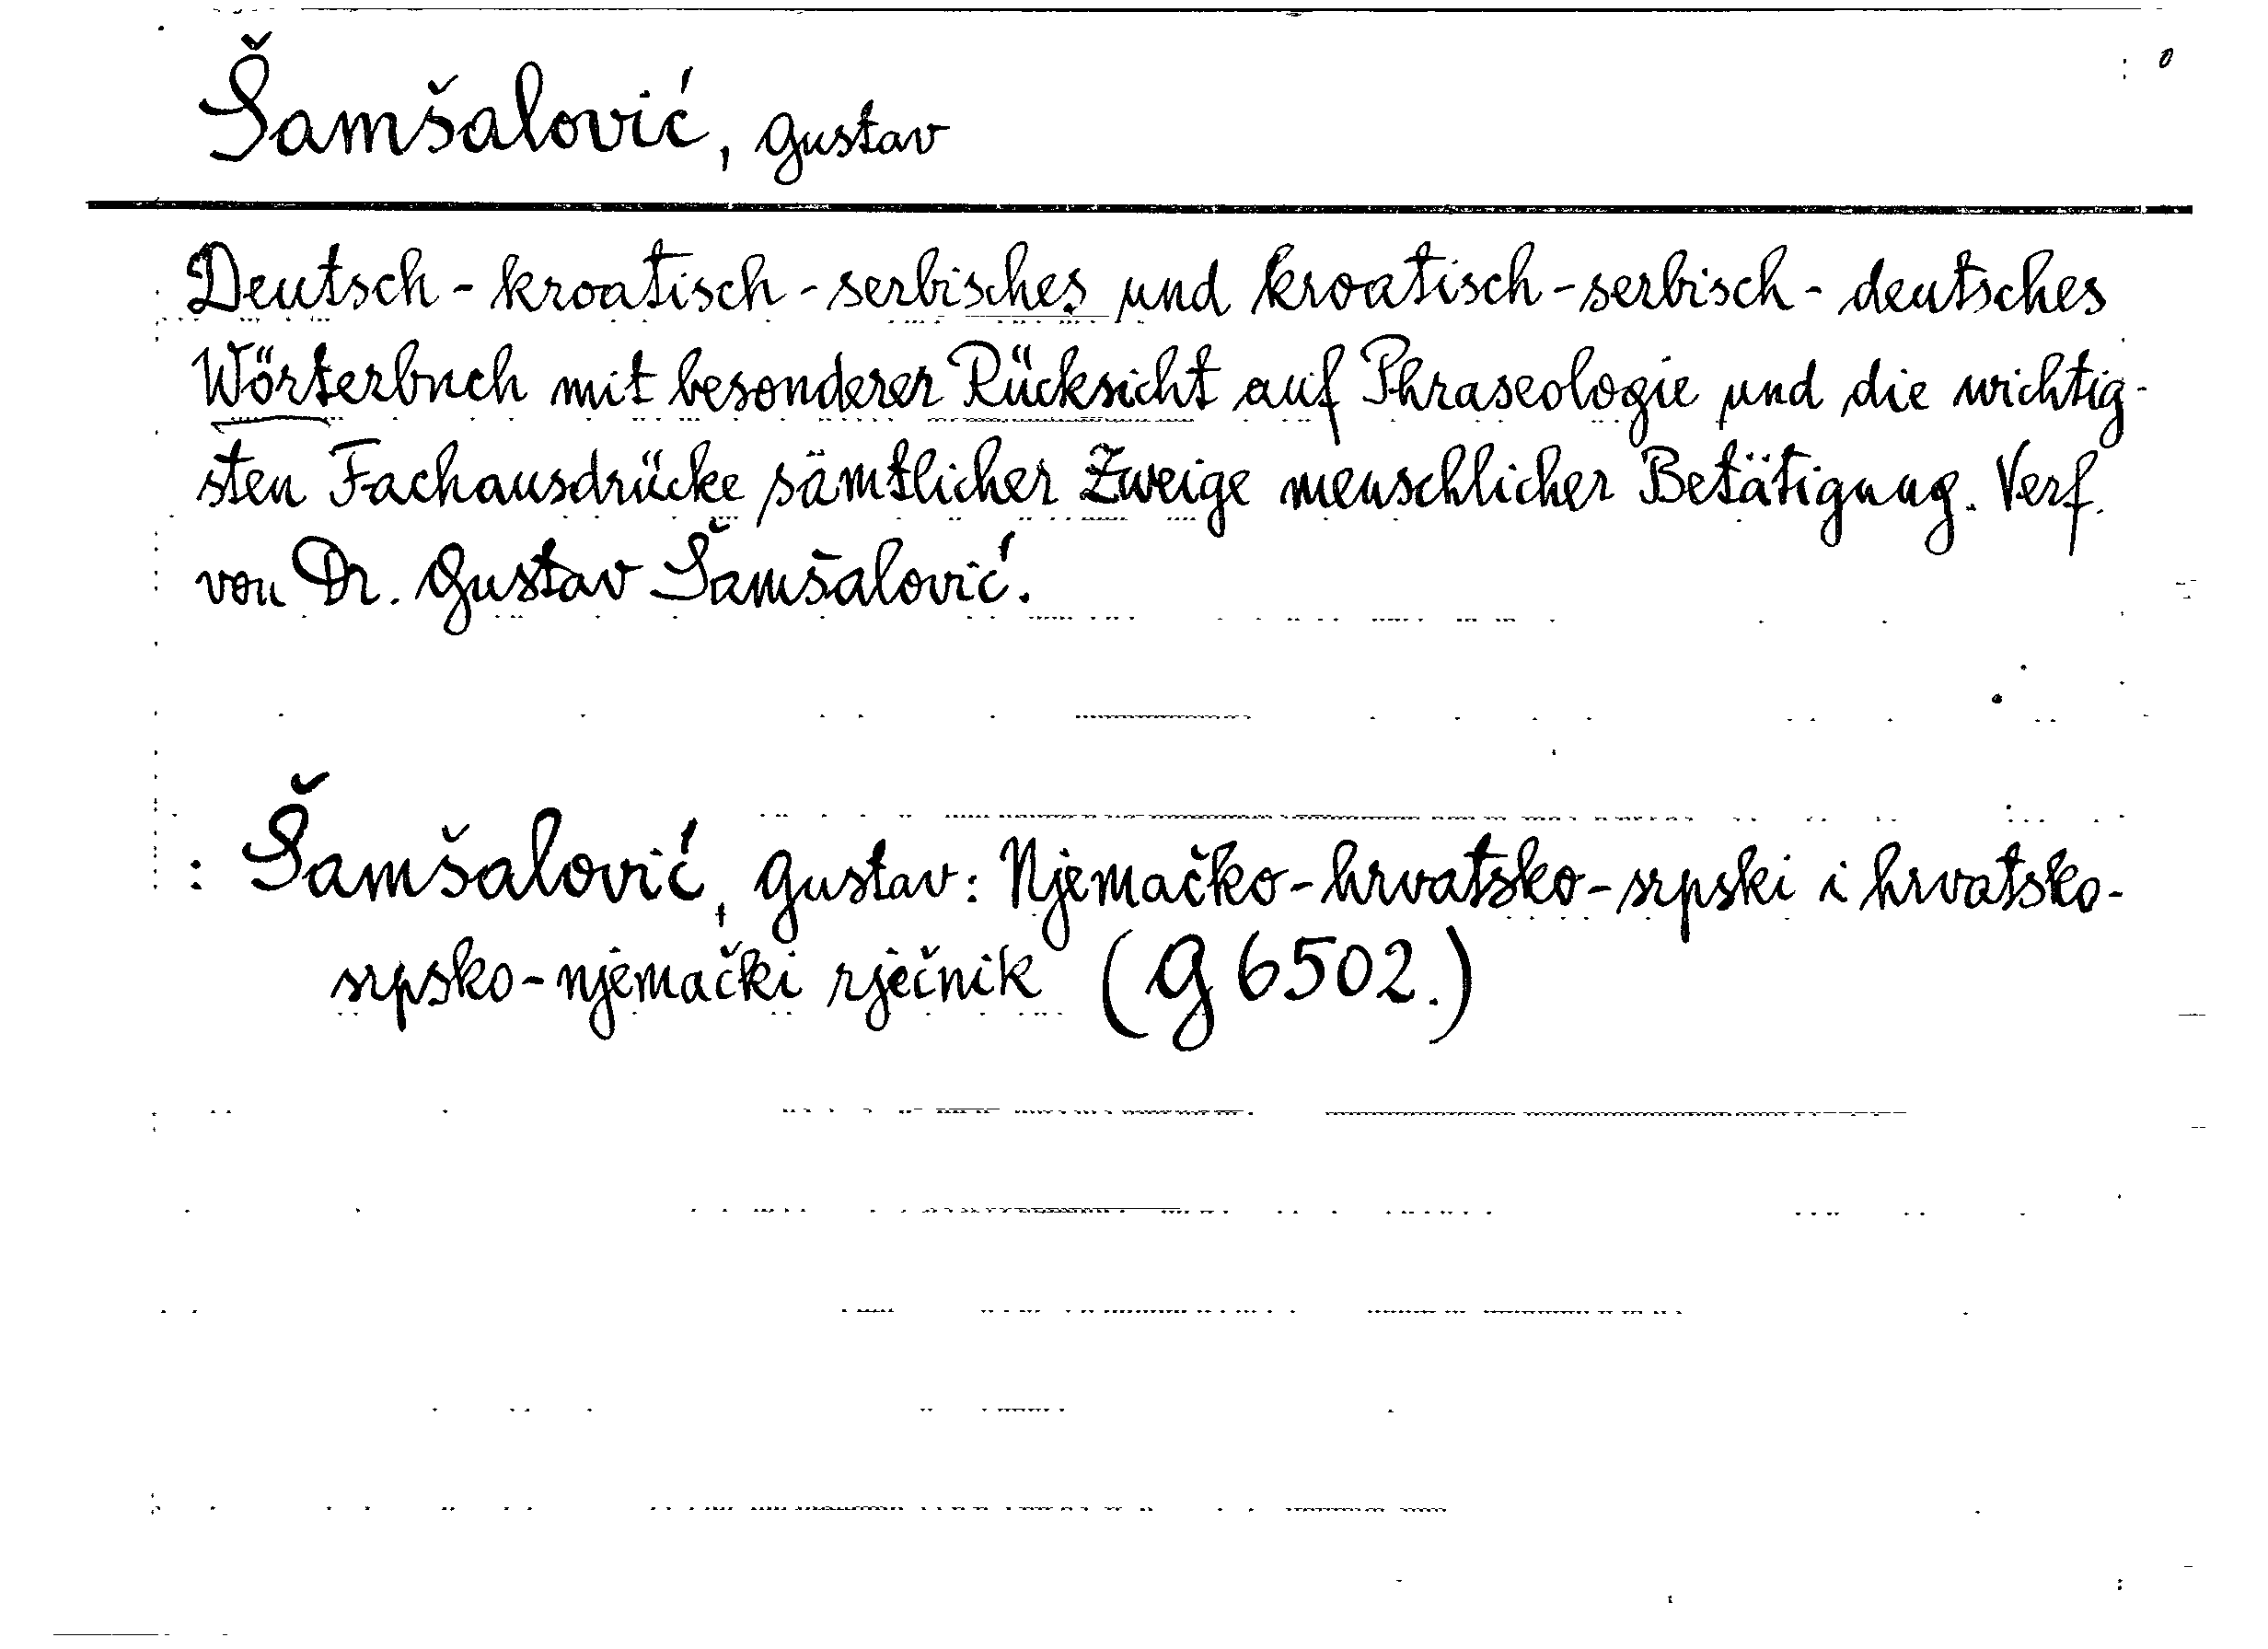 Šamšalović, Gustav
Deutsch-kroatisch-serbisches und kroatisch-serbisch-deutsches
Wörterbuch mit besonderer Rücksicht auf Phraseologie und die wichtig-
sten Fachausdrücke sämtlicher Zweige menschlicher Betätigung. Verf.
von Dr. Gustav Šamšalović.
: Šamšalović, Gustav: Njemačko-hrvatsko-srpski i hrvatsko-
srpsko-njemački rječnik (G 6502.)